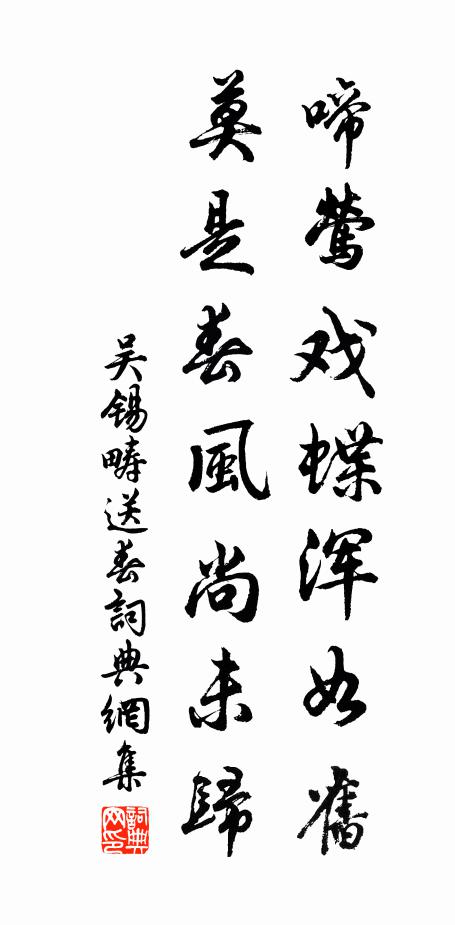 啼鶯戏蝶浑如舊
莫是春風尚未歸
吴锡疇送春詞典網集
詞典網印